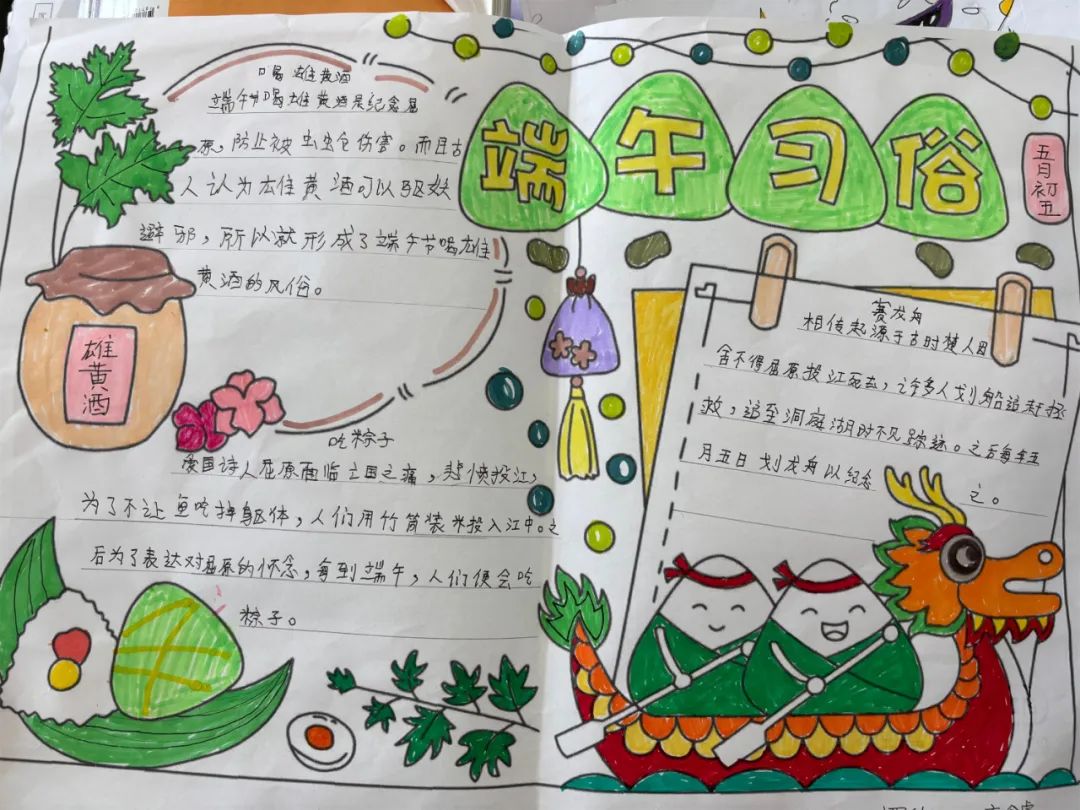 端午习俗
五月初五
喝雄黄酒
端午节喝雄黄酒是纪念屈
原，防止被虫虫它伤害。而且古
人认为雄黄酒可以驱妖
避邪，所以就形成了端午节喝雄
黄酒的风俗。
雄黄酒
吃粽子
爱国诗人屈原面临亡国之痛，悲愤投江，
为了不让鱼吃掉躯体，人们用竹筒装米投入江中。之
后为了表达对屈原的怀念，每到端午，人们便会吃
粽子。
赛龙舟
相传起源于古时楚人因
舍不得屈原投江死去，许多人划船追赶拯
救，追至洞庭湖时不见踪迹。之后每年五
月五日划龙舟以纪念之。